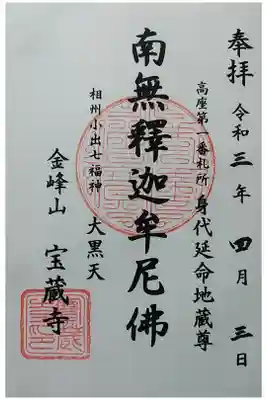 奉拝 令和三年四月三日
高座第一番札所 身代延命地蔵尊
南無釋迦牟尼佛
相州小出七福神 大黒天
金峰山 宝蔵寺